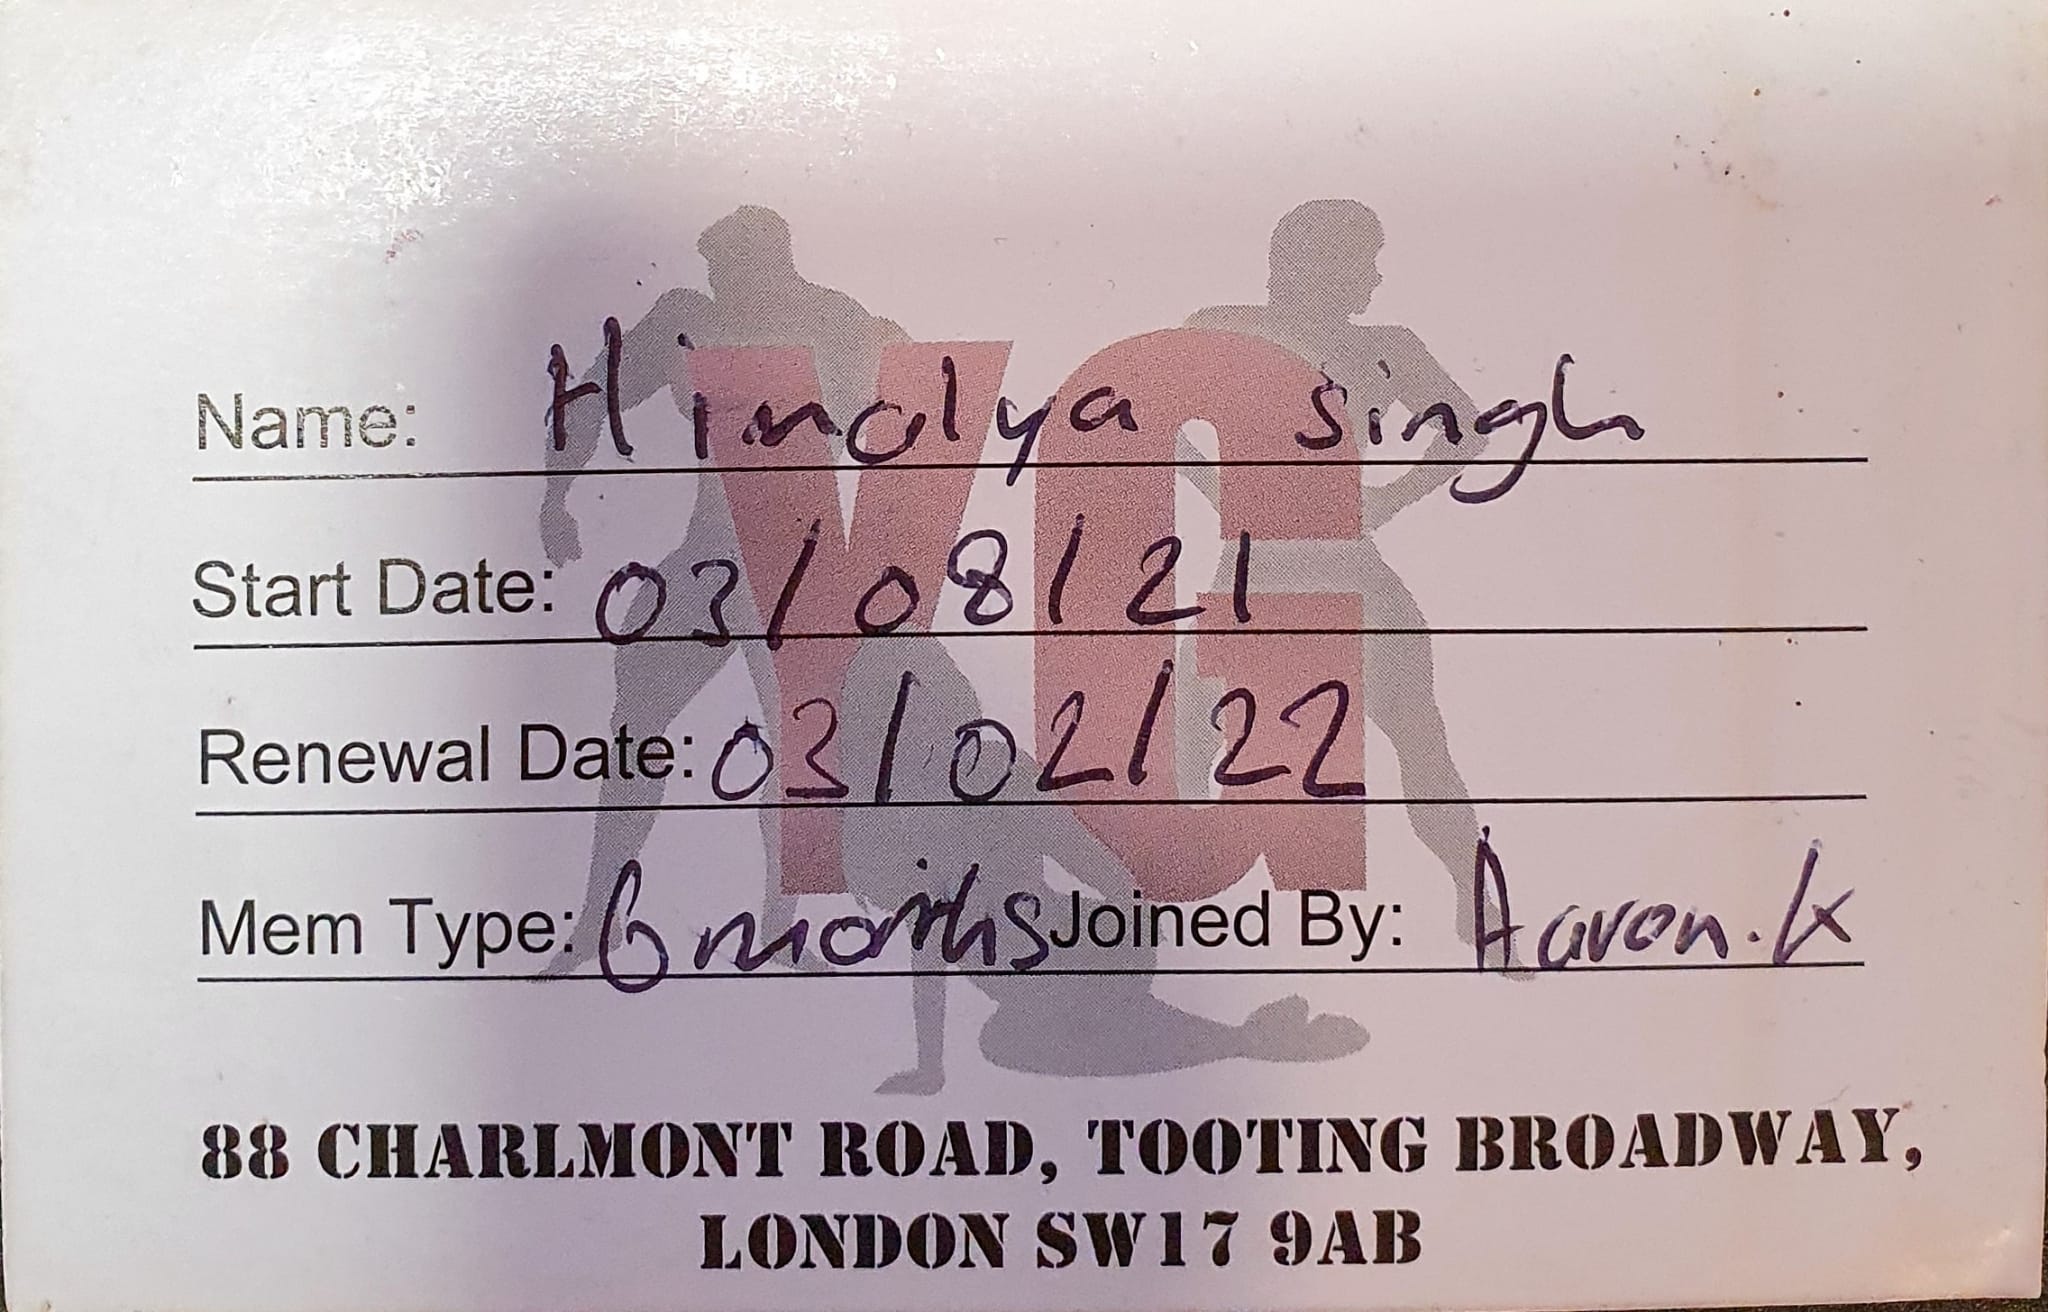 YG
Name: Himalya Singh
Start Date: 03/08/21
Renewal Date: 03/02/22
Mem Type: 6 months Joined By: Aaron.K
88 CHARLMONT ROAD, TOOTING BROADWAY,
LONDON SW17 9AB